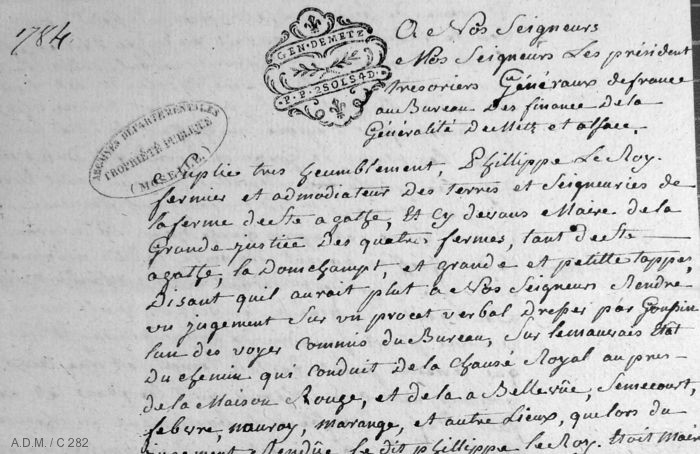 1784
GEN · DE METZ
P · P · 2 SOLS 4 D ·
ARCHIVES DÉPARTEMENTALES
PROPRIÉTÉ PUBLIQUE
(MOSELLE)
A Nos Seigneurs
Nos Seigneurs Les président
tresoriers Généraux de france
au Bureau Des finance de la
Généralité de Metz et alsace.
Suplie tres heumblement, Phillippe Le Roy.
fermier et admodiateur Des terres et Seigneuries de
la ferme de Ste agathe, Et Cy devans Maire de la
Grande justice Des quatres fermes, tant de Ste
agathe, la Domchampt, et grande et petitte tappes,
Disant quil aurait plut a Nos Seigneurs Rendre
un jugement Sur un procet verbal dressés par Goussin
lun des voyer commis du Bureau, Sur le mauvais Etat
Du chemin qui conduit de la chausé Royal au pres
de la Maison Rouge, et de la a Bellevüe, Semecourt,
febvre, mauroy, marange, et autre Lieux, que lors du
jugement Rendüe Le dit phillippe le Roy. Etoit Maire
A.D.M. / C 282